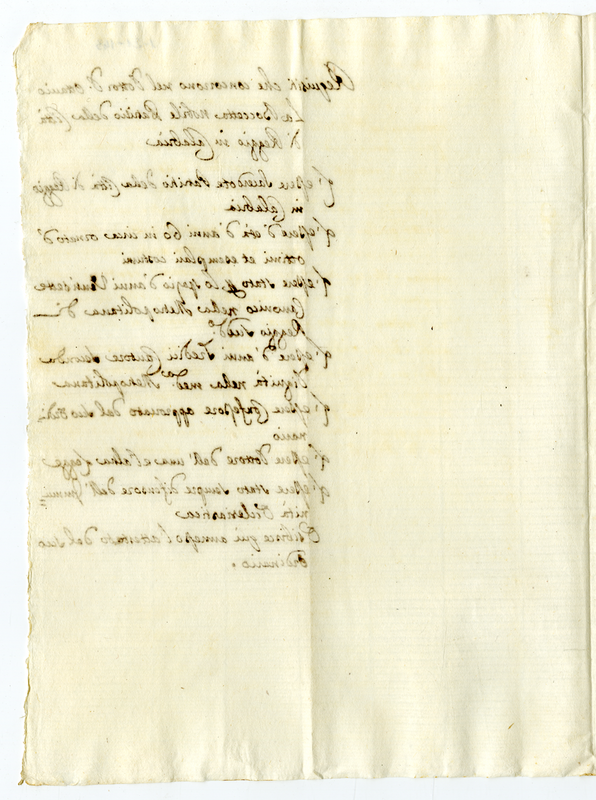 Requisiti che concorrono nel Dottor D. 
La Boccetta nobile Patritio della Città
di Reggio in Calabria
P.º essere Sacerdote Patritio della Città di Reggio
in Calabria
P.º essere d'età d'anni 60 in circa ornato d'
ottimi et esemplari costumi
P.º essere stato p lo spazio d'anni Venti sette
Canonico nella Metropolitana di
Reggio Sud.º
P.º essere d'anni Tredici Cantore Seconda
Dignità nella med.ª Metropolitana
P.º essere Confessore approvato dal suo Ordi-
nario
P.º essere Dottore dell' una e l'altra Legge
P.º essere stato sempre difensore dell' Immu=
nità Eclesiastica
Esibisce qui annesso l'attestato del suo
Ordinario.